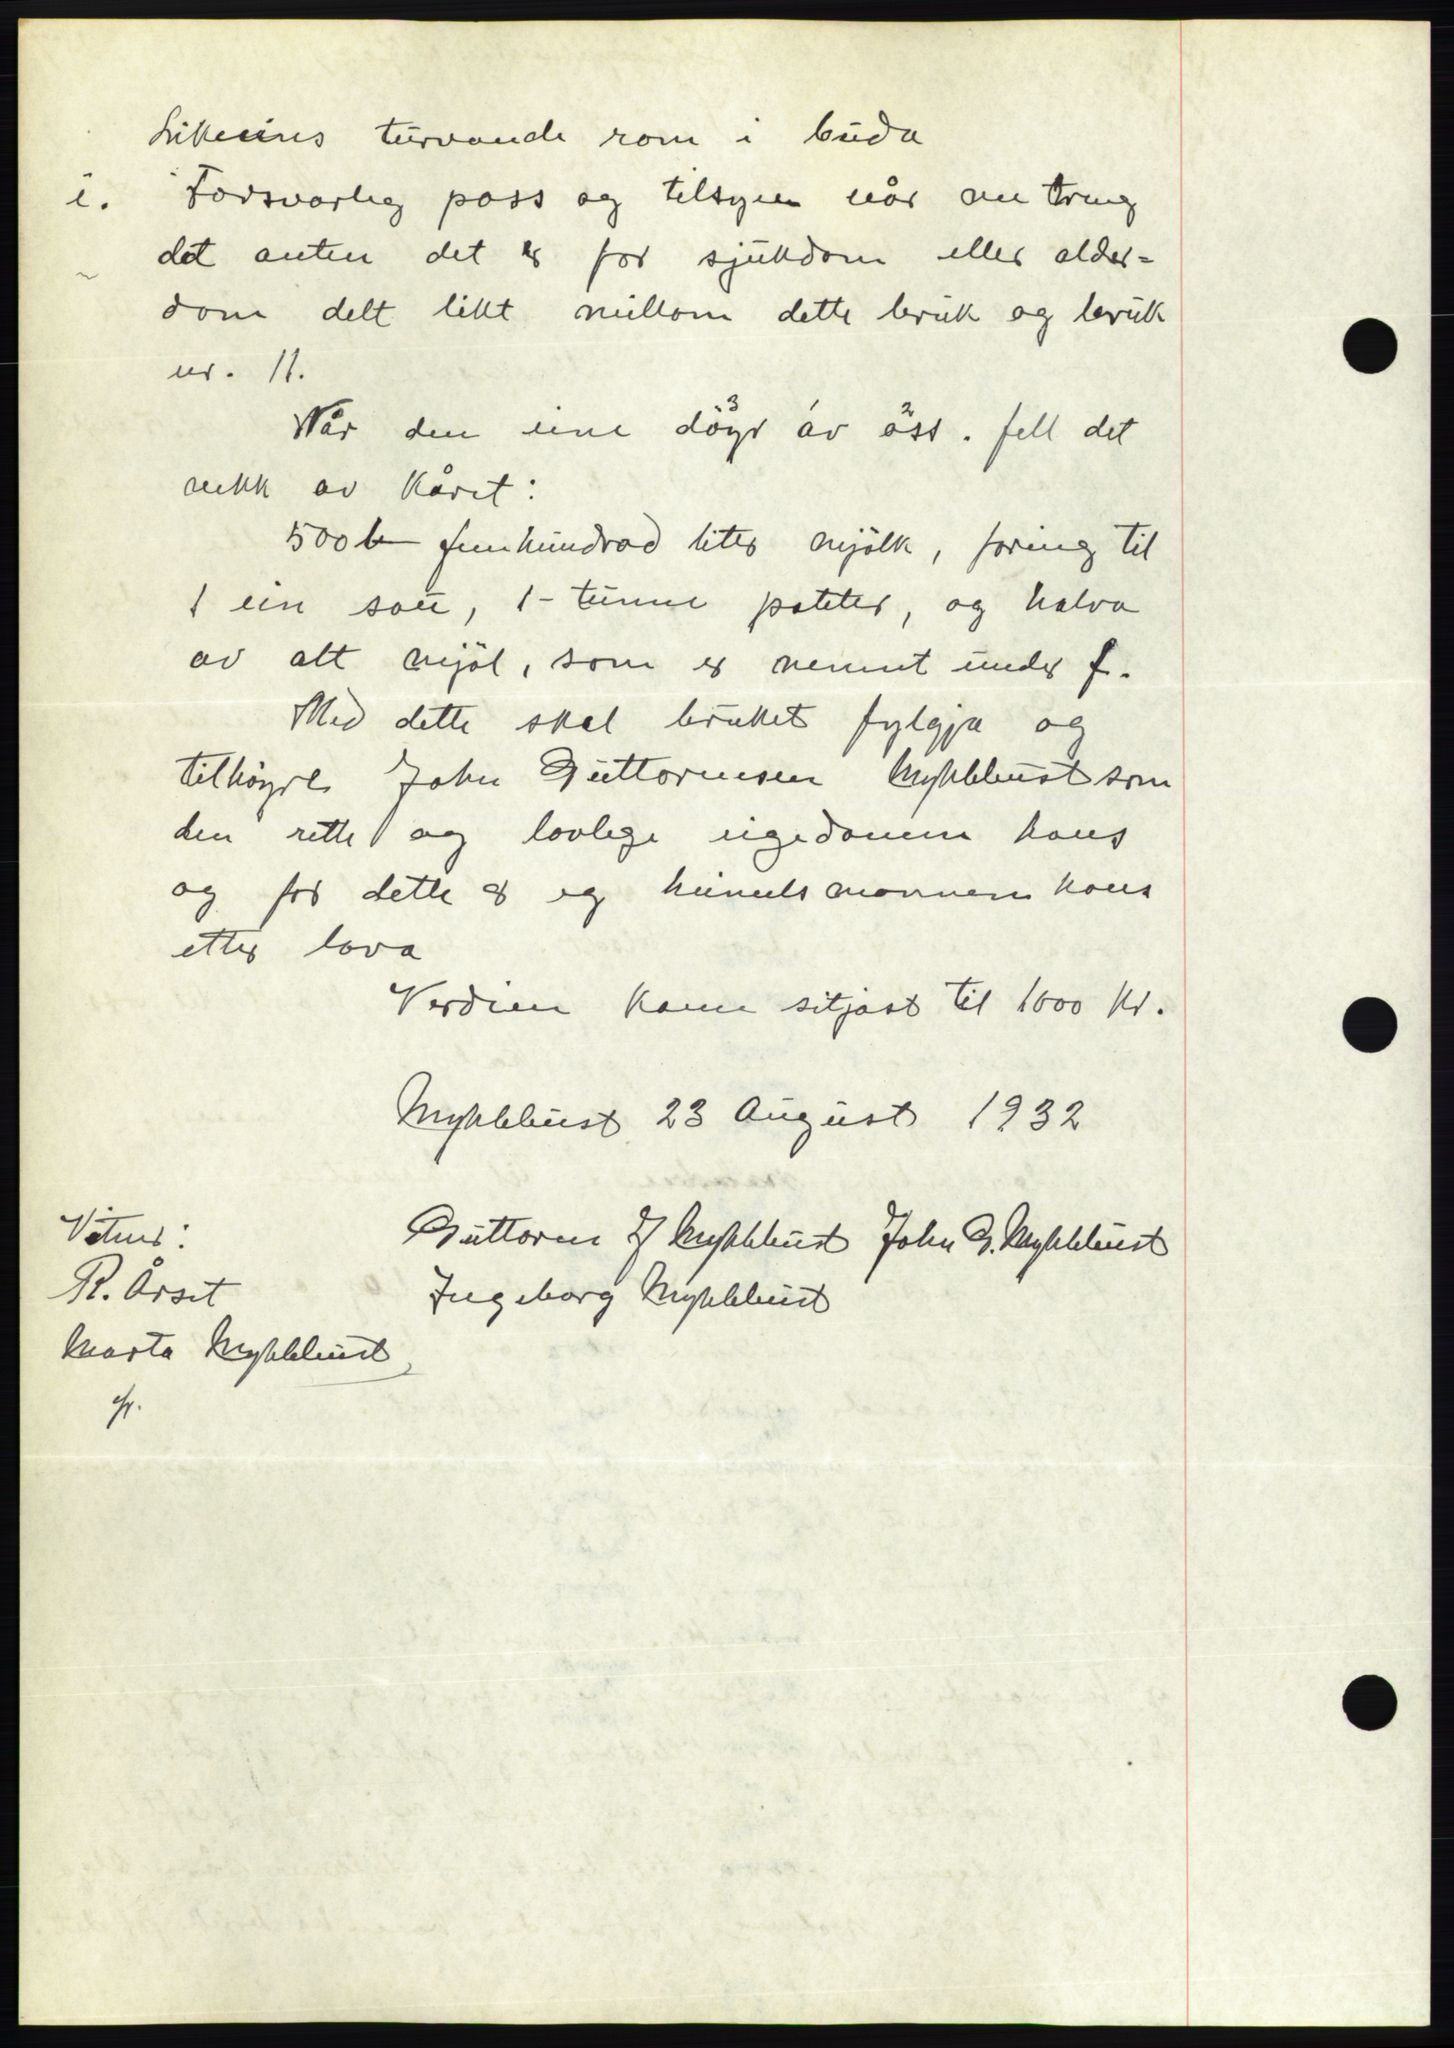 Likeeins turvande rom i buda
i. Forsvarleg pass og tilsyn når me treng
det anten det er for sjukdom eller alder-
dom delt likt millom dette bruk og bruk
nr. 11.
Når den eine döyr av oss. fell det
vekk av kåret:
500 l- femhundrad liter mjölk, foring til
1 ein sau, 1- tunne poteter, og halva
av alt mjöl, som er nemnt under f.
Med dette skal bruket fylgja og
tilhöyre John Guttormsen Myklebust som
den rette og lovlege eigedomen hans
og for dette er eg heimelsmannen hans
etter lova
Verdien kann setjast til 1000 kr.
Myklebust 23 August 1932
Vitner: Guttorm J Myklebust John G. Myklebust
R. Årset Ingeborg Myklebust
Marta Myklebust